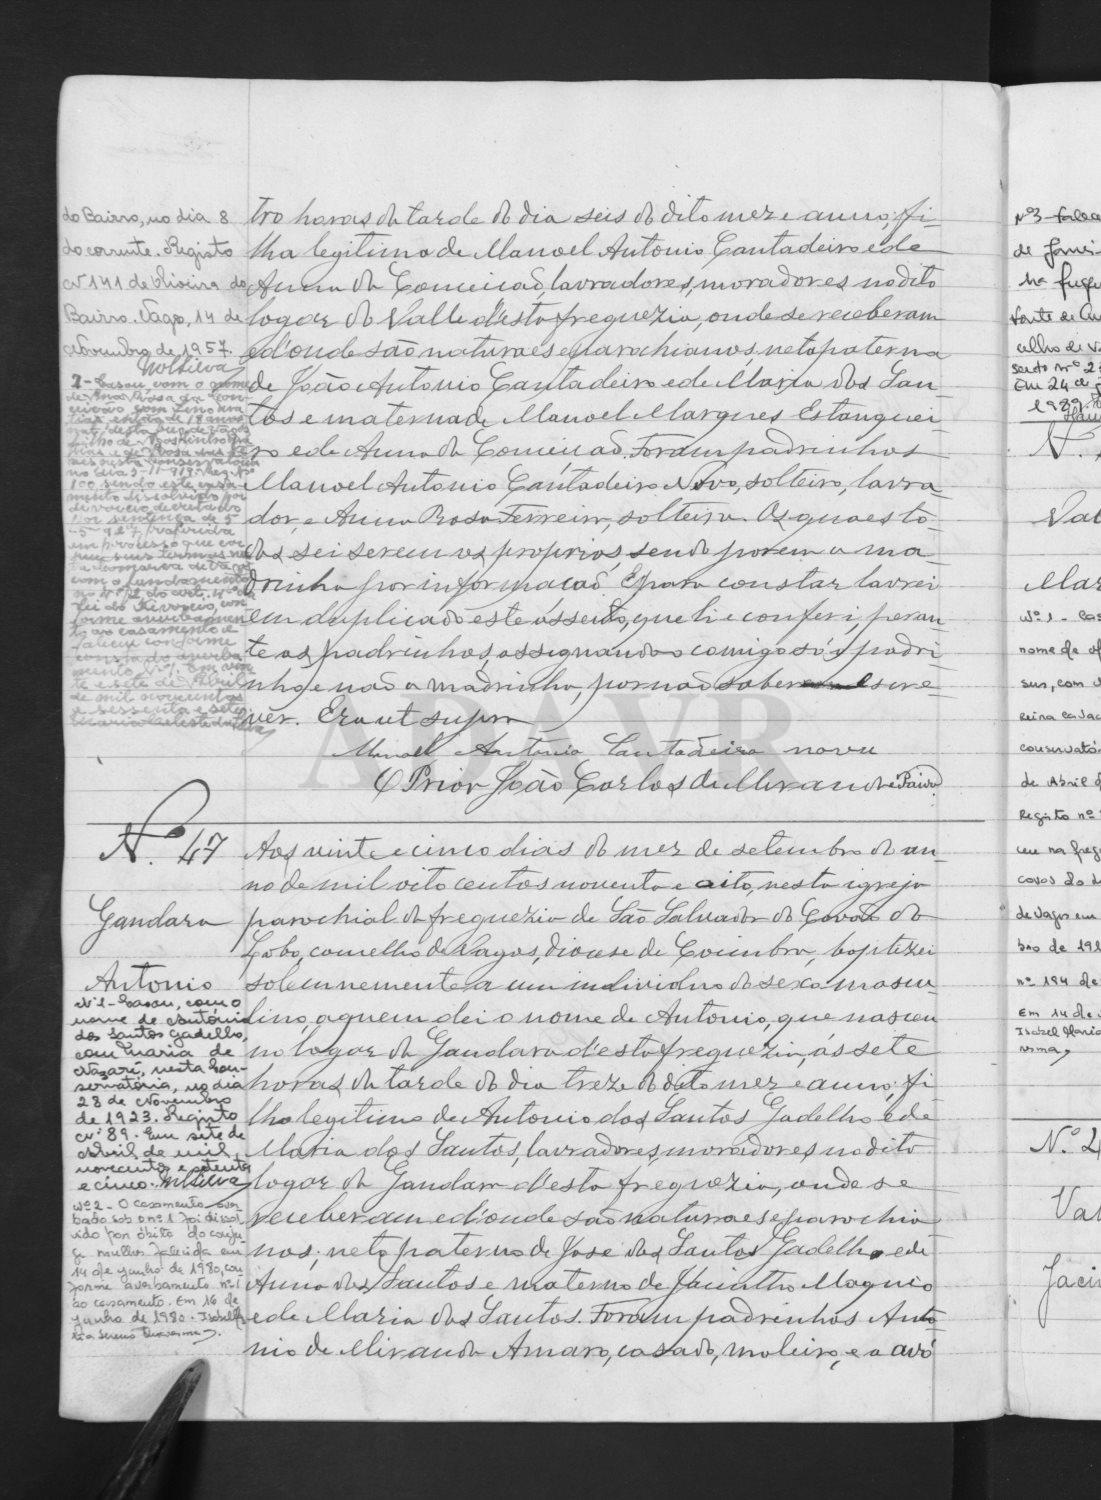 do Bairro, no dia 8
do corrente. Registo
Nº 141 de Oliveira do
Bairro. Vagos, 14 de
Novembro de 1957.
MSilva
2 - Casou, com o nome
de Ana Rosa da Con-
ceição com
filho de
no dia 5-11-918. Registo
100 sendo este casa-
mento dissolvido por
divorcio decretado
por sentença de 5
proferida
em processo que cor-
reu seus termos na
com o fundamento
no nº 2 do art. 4º da
lei do divorcio, con-
forme averbamen-
to ao casamento e
faleceu conforme
consta do averba-
mento nº 1. Em vin-
te e sete de Abril
de mil novecentos
e sessenta e sete.
tro horas da tarde do dia seis do dito mez e anno; fi-
lha legitima de Manoel Antonio Cantadeiro e de
Anna da Conceicaõ, lavradores, moradores no dito
logar do Valle d'esta freguezia, onde se receberam
e d'onde saõ naturaes e parochianos, neta paterna
de João Antonio Cantadeiro e de Maria dos San-
tos e materna de Manoel Marques Estanquei-
ro e de Anna da Conceicaõ. Foram padrinhos
Manoel Antonio Cantadeiro Novo, solteiro, lavra-
dor, e Anna Rosa Ferreira, solteira. Os quaes to-
dos sei serem os proprios, sendo porem a ma-
drinha por informacaõ. E para constar lavrei
em duplicado este assento, que li e conferi, peran-
te os padrinhos, assignando-o comigo só o padri-
nho, e naõ a madrinha, por naõ saber escre-
ver. Era ut supra
Manoel Antonio Cantadeiro novo
O Prior João Carlos de Miranda e Paiva
ADAVR
Nº 47
Gandara
Antonio
Nº 1 - Casou, com o
nome de António
dos Santos Gadelho,
com Maria de
Nazaré, nesta Con-
servatória, no dia
28 de Novembro
de 1923. Registo
Nº 89. Em sete de
Abril de mil
novecentos e setenta
e cinco. MSilva
Nº 2 - O casamento aver-
bado sob o nº 1 foi dissol-
vido por óbito do conju-
ge mulher falecida em
14 de Junho de 1980, con-
forme averbamento nº 1
ao casamento. Em 16 de
Junho de 1980.
Aos vinte e cinco dias do mez de setembro do an-
no de mil oito centos noventa e oito, nesta igreja
parochial da freguezia de Saõ Salvador do Covaõ do
Lobo, concelho de Vagos, diocese de Coimbra, baptizei
solemnemente a um individuo do sexo mascu-
lino, a quem dei o nome de Antonio, que nasceu
no logar da Gandara d'esta freguezia, ás sete
horas da tarde do dia treze do dito mez e anno; fi-
lho legitimo de Antonio dos Santos Gadelho e de
Maria dos Santos, lavradores, moradores no dito
logar da Gandara d'esta freguezia, onde se
receberam e d'onde saõ naturaes e parochia-
nos; neto paterno de Jose dos Santos Gadelho e de
Anna dos Santos e materno de Jacintho Magnio
e de Maria dos Santos. Foram padrinhos Anto-
nio de Miranda Amaro, casado, moleiro, e a avó
Nº 3 - Falec
de Janei-
na fregu
Em 24 de
1989.
Mar
Nº 1 - Cas
nome de
sus, com
conservató
de Abril d
Registo nº
ceu na freg
de Vagos em
nº 194 de
Em 14 de
Isabel Maria
Nº 4
Val
Jacin